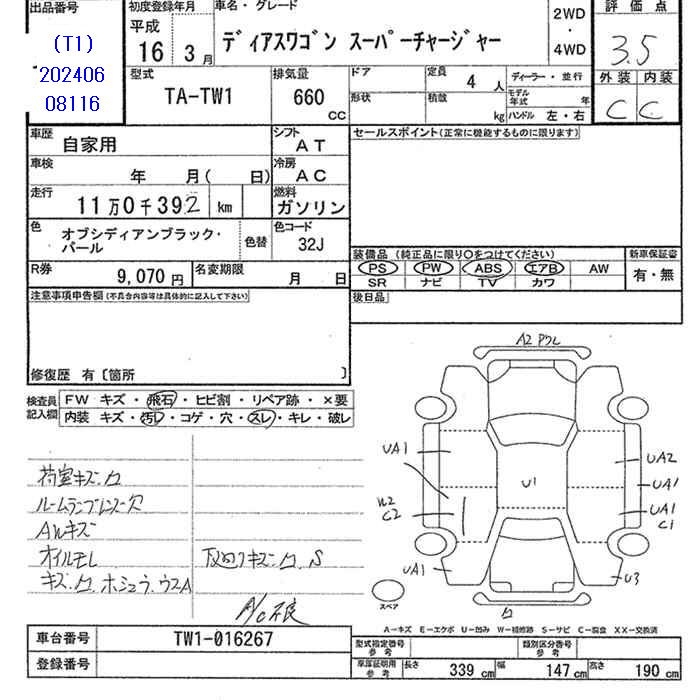 出品番号
(T1)
202406
08116
初度登録年月
平成
16 3月
車名・グレード
ディアスワゴン スーパーチャージャー
2WD
・
4WD
評価点
3.5
外装 内装
C C
型式
TA-TW1
排気量
660
CC
ドア
定員 4 人
形状
積載 kg
ディーラー・並行
モデル年式 年
ハンドル 左・右
車歴
自家用
シフト
AT
セールスポイント(正常に機能するものに限ります)
車検
年 月( 日)
冷房
AC
走行
11万0千392 km
燃料
ガソリン
色
オブシディアンブラック・パール
色替
色コード
32J
装備品 (純正品に限り○をつけてください)
新車保証書
PS PW ABS エアB AW
有・無
SR ナビ TV カワ
R券
9,070 円
名変期限
月 日
後日品
注意事項申告欄(不具合内容等は具体的に記入して下さい)
修復歴 有〔箇所 〕
検査員
記入欄
FW キズ・飛石・ヒビ割・リペア跡・×要
内装 キズ・汚レ・コゲ・穴・スレ・キレ・破レ
荷室キズ.凹
ルームランプレンズ欠
AWキズ
オイルモレ
下回りキズ.凹.S
キズ.凹.ホシュウ.ウスA
A/C不良
A2 Pクレ
UA1
UA2
UA1
U1
W2
C2
UA1
C1
UA1
U3
凹
スペア
A−キズ E−エクボ U−凹み W−補修跡 S−サビ C−腐食 XX−交換済
車台番号
TW1-016267
登録番号
型式指定番号
参考
類別区分番号
参考
車庫証明用
参考
長さ 339 cm
幅 147 cm
高さ 190 cm